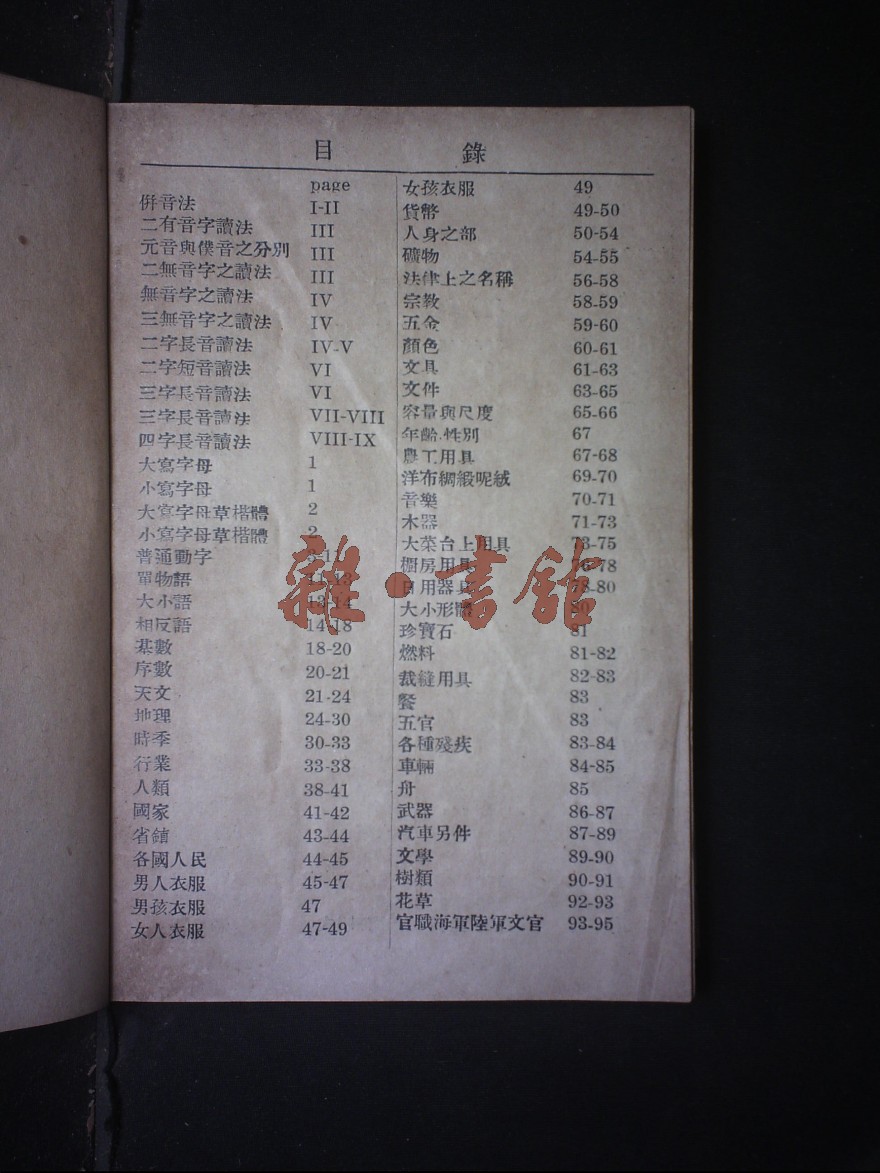 目錄
page
倂音法 I-II
二有音字讀法 III
元音與僕音之分別 III
二無音字之讀法 III
無音字之讀法 IV
三無音字之讀法 IV
二字長音讀法 IV-V
二字短音讀法 VI
三字長音讀法 VI
三字長音讀法 VII-VIII
四字長音讀法 VIII-IX
大寫字母 1
小寫字母 1
大寫字母草楷體 2
小寫字母草楷體 2
普通動字
單物語 11-13
大小語 13-14
相反語 14-18
基數 18-20
序數 20-21
天文 21-24
地理 24-30
時季 30-33
行業 33-38
人類 38-41
國家 41-42
省鎮 43-44
各國人民 44-45
男人衣服 45-47
男孩衣服 47
女人衣服 47-49
女孩衣服 49
貨幣 49-50
人身之部 50-54
礦物 54-55
法律上之名稱 56-58
宗教 58-59
五金 59-60
顏色 60-61
文具 61-63
文件 63-65
容量與尺度 65-66
年齡.性別 67
農工用具 67-68
洋布綢緞呢絨 69-70
音樂 70-71
木器 71-73
大菜台上用具 73-75
櫥房用具 76-78
日用器具 78-80
大小形體 80
珍寶石 81
燃料 81-82
裁縫用具 82-83
餐 83
五官 83
各種殘疾 83-84
車輛 84-85
舟 85
武器 86-87
汽車另件 87-89
文學 89-90
樹類 90-91
花草 92-93
官職海軍陸軍文官 93-95
雜·書館